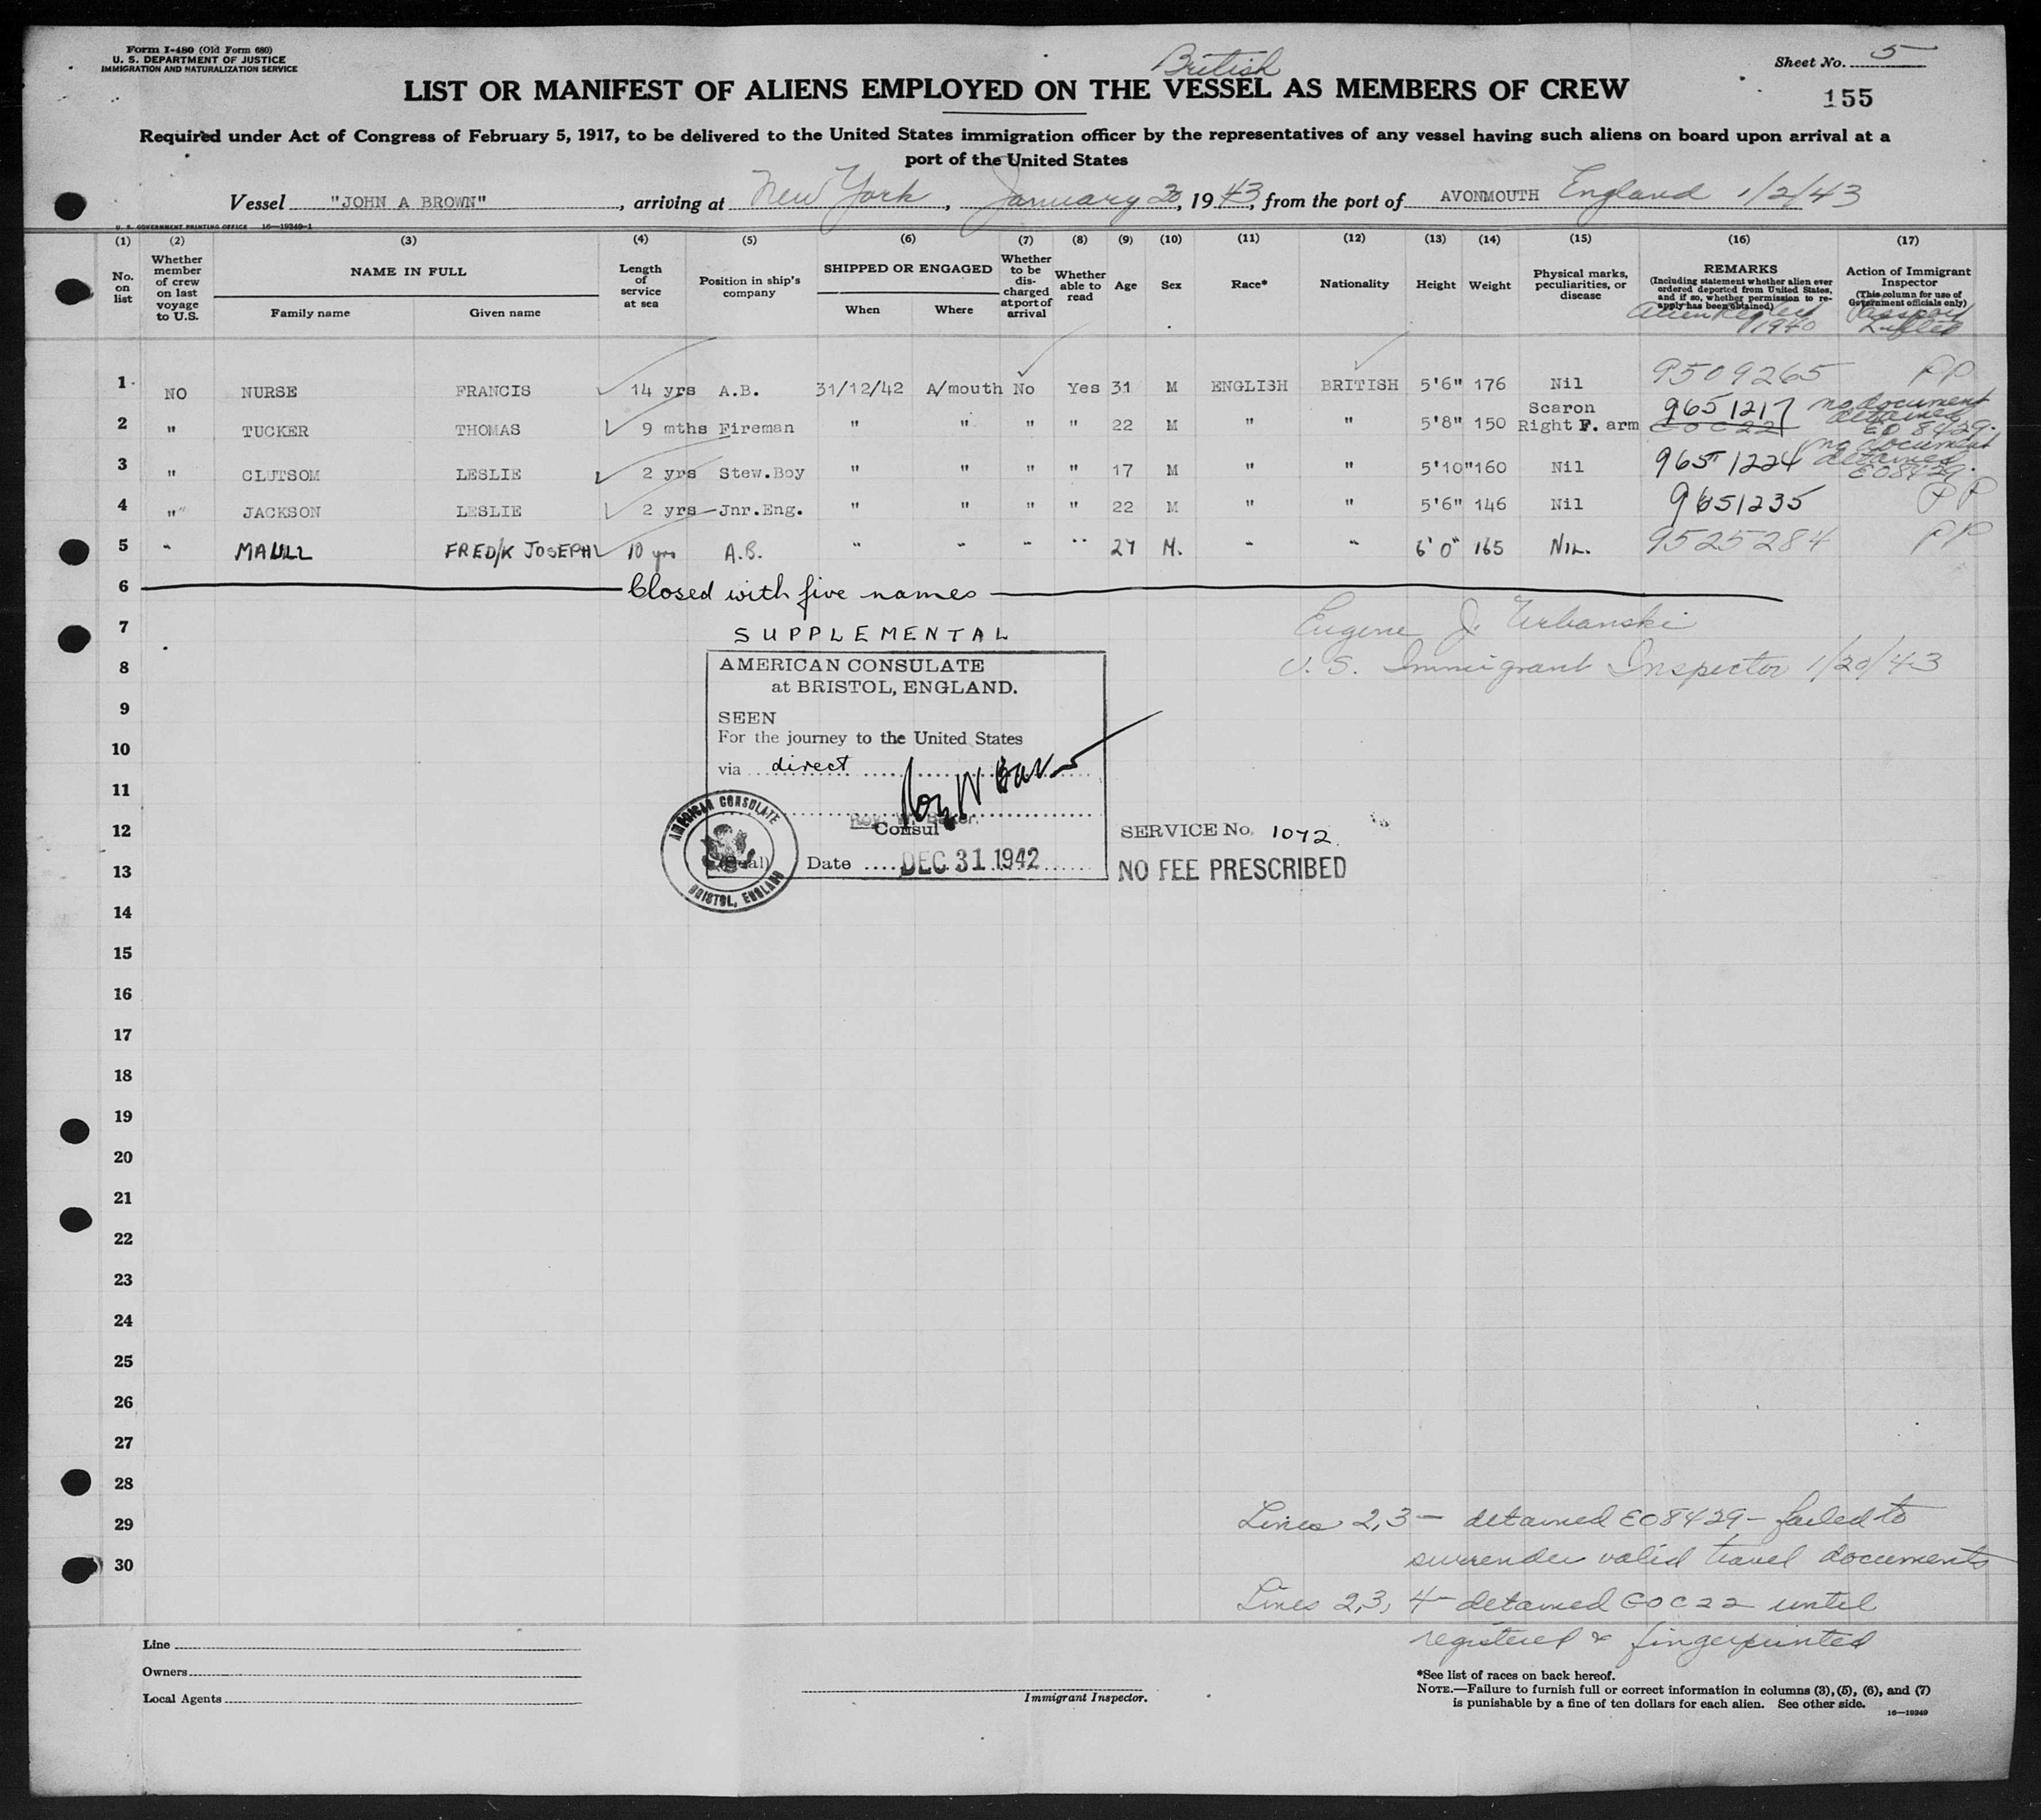 Form I-480 (Old Form 680)
U. S. DEPARTMENT OF JUSTICE
IMMIGRATION AND NATURALIZATION SERVICE
Sheet No. 5
British
LIST OR MANIFEST OF ALIENS EMPLOYED ON THE VESSEL AS MEMBERS OF CREW
155
Required under Act of Congress of February 5, 1917, to be delivered to the United States immigration officer by the representatives of any vessel having such aliens on board upon arrival at a
port of the United States
Vessel "JOHN A BROWN", arriving at New York, January 20, 1943, from the port of AVONMOUTH England 1/2/43
U. S. GOVERNMENT PRINTING OFFICE 16—19249-1
(1) (2) (3) (4) (5) (6) (7) (8) (9) (10) (11) (12) (13) (14) (15) (16) (17)
No. on list
Whether member of crew on last voyage to U.S.
NAME IN FULL
Family name Given name
Length of service at sea
Position in ship's company
SHIPPED OR ENGAGED
When Where
Whether to be discharged at port of arrival
Whether able to read
Age
Sex
Race*
Nationality
Height
Weight
Physical marks, peculiarities, or disease
REMARKS
(Including statement whether alien ever ordered deported from United States, and if so, whether permission to reapply has been obtained)
1940
Action of Immigrant Inspector
(This column for use of Government officials only)
Passport Lifted
1 NO NURSE FRANCIS 14 yrs A.B. 31/12/42 A/mouth No Yes 31 M ENGLISH BRITISH 5'6" 176 Nil 9509265 PP
2 " TUCKER THOMAS 9 mths Fireman " " " " 22 M " " 5'8" 150 Scaron Right F. arm 9651217 GOC 22 no document detained EO 8429.
3 " CLUTSOM LESLIE 2 yrs Stew.Boy " " " " 17 M " " 5'10" 160 Nil 9651224 no document detained EO8429.
4 " JACKSON LESLIE 2 yrs Jnr.Eng. " " " " 22 M " " 5'6" 146 Nil 9651235 PP
5 " MAULL FRED/K JOSEPH 10 yrs A.B. " " " " 27 M. " " 6'0" 165 NIL. 9525284 PP
6 Closed with five names
7 SUPPLEMENTAL
Eugene J. Urbanski
8 U. S. Immigrant Inspector 1/20/43
AMERICAN CONSULATE
at BRISTOL, ENGLAND.
9 SEEN
For the journey to the United States
10 via direct
11
Roy W Baker
12 Roy W. Baker.
Consul
SERVICE No. 1072
AMERICAN CONSULATE
BRISTOL, ENGLAND
13 (Seal) Date DEC 31 1942
NO FEE PRESCRIBED
14
15
16
17
18
19
20
21
22
23
24
25
26
27
28
29
30
Lines 2,3 — detained EO8429 — failed to
surrender valid travel documents
Lines 2,3, 4 — detained GOC22 until
registered & fingerprinted
Line
Owners
Local Agents
Immigrant Inspector.
*See list of races on back hereof.
NOTE.—Failure to furnish full or correct information in columns (3), (5), (6), and (7)
is punishable by a fine of ten dollars for each alien. See other side.
16—19249